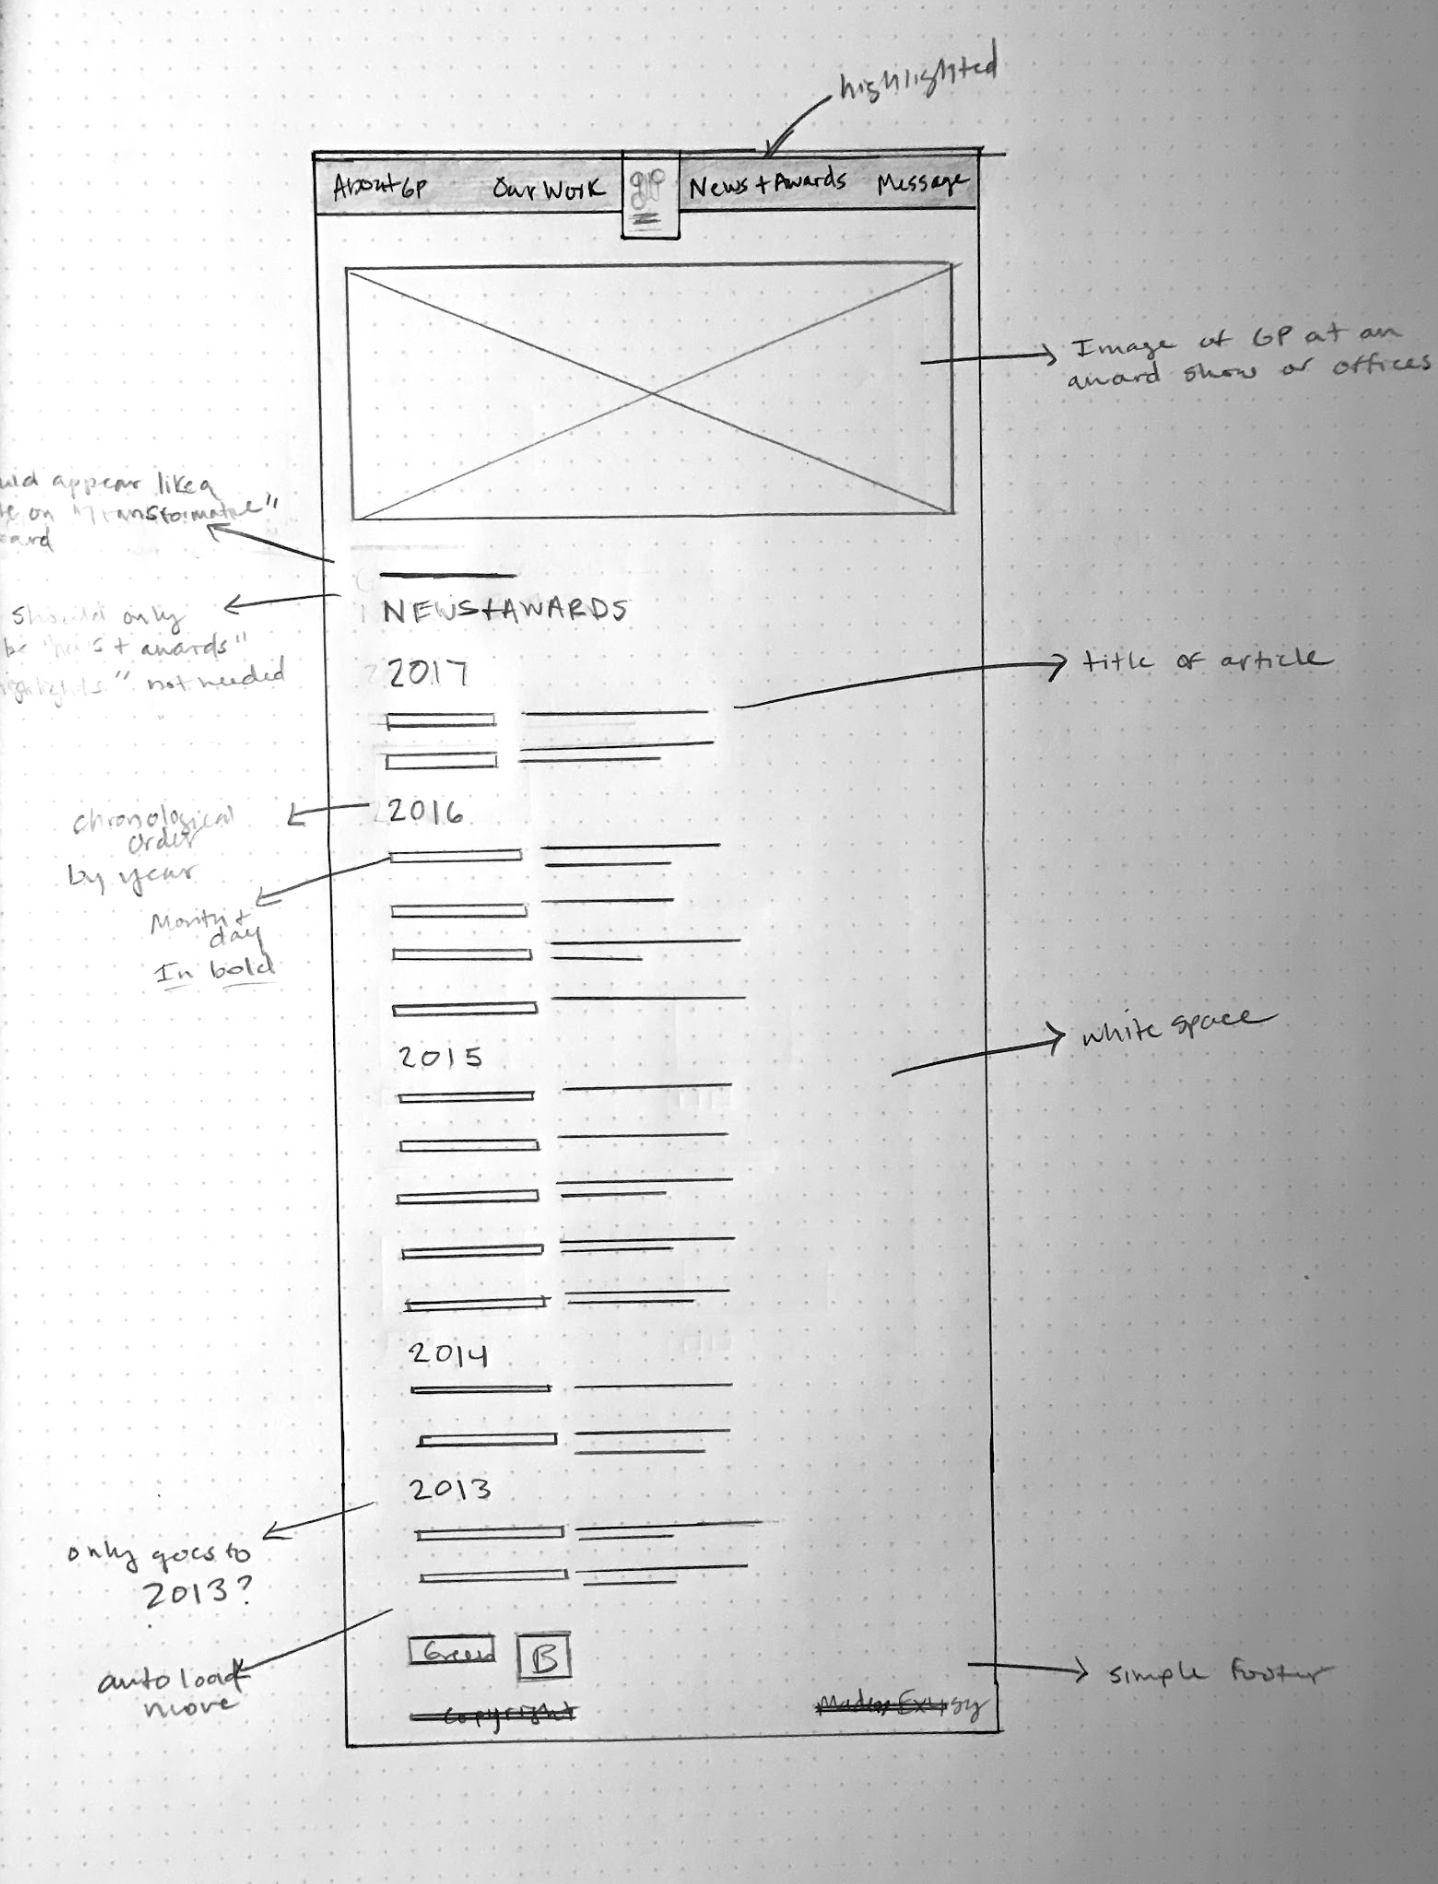 highlighted
About GP
Our Work
gp
News + Awards
Message
Image of GP at an
award show or offices
appear like a
on "Transformative"
NEWS+AWARDS
should only
be "news + awards"
not needed
2017
title of article
2016
chronological
order
by year
Month +
day
In bold
2015
white space
2014
2013
only goes to
2013?
auto load
more
Green
B
simple footer
copyright